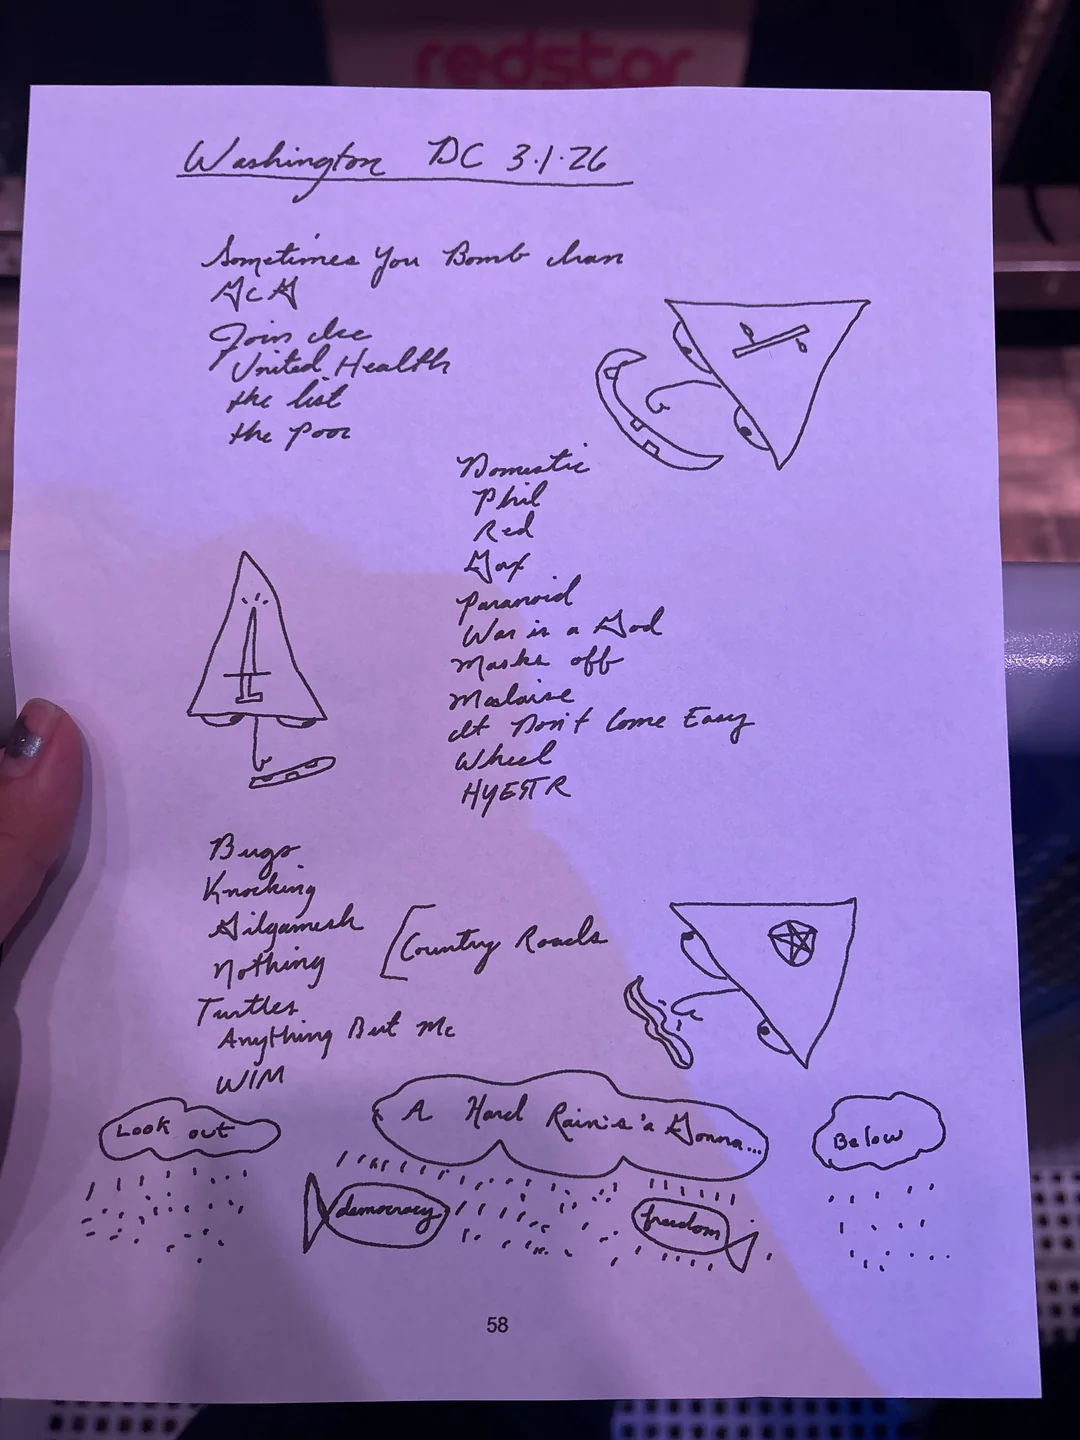 redstar
Washington DC 3.1.26
Sometimes You Bomb Iran
GCG
Join Ice
United Health
the list
the poor
Domestic
Phil
Red
Gax
Paranoid
War is a God
Masks off
Malaise
It Don't Come Easy
Wheel
HYESTR
Bugs
Knocking
Gilgamesh
Nothing
[Country Roads
Turtles
Anything But Me
WIM
Look out
A Hard Rain's 'a Gonna...
Below
democracy
freedom
58